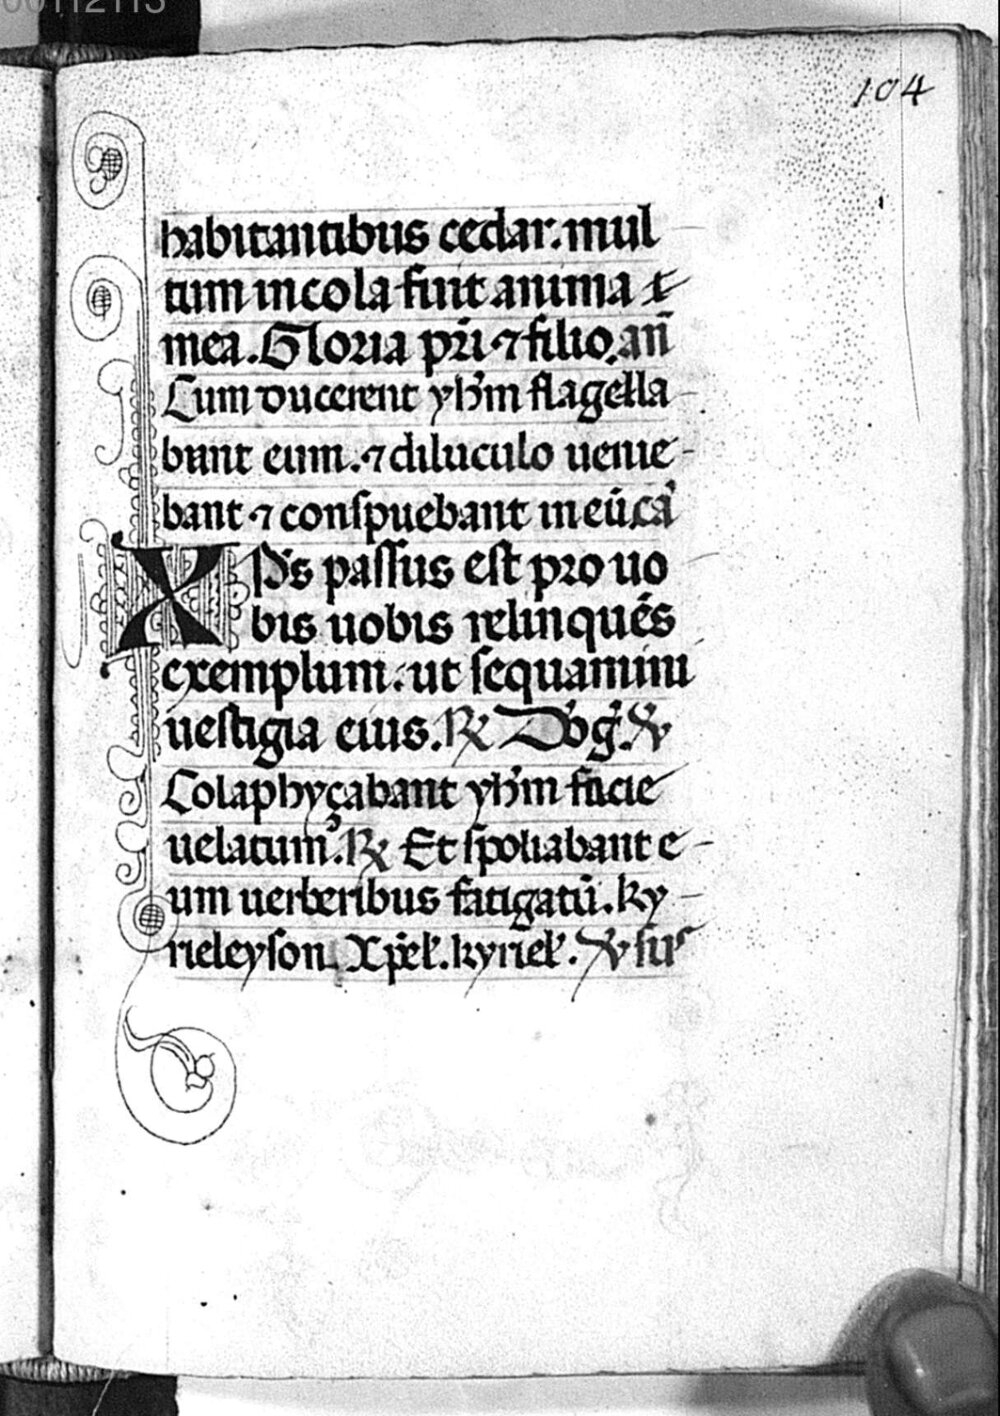 00112113
104
habitantibus cedar. mul
tum incola fuit anima
mea. Gloria pr̄i ⁊ filio. an̄
Cum ducerent yhm̄ flagella
bant eum. ⁊ diluculo ueniē
bant ⁊ conspuebant in eū. ca
Xp̄s passus est pro uo
bis uobis relinquēs
exemplum. ut sequamini
uestigia eius. ℟ Do g̃. ℣
Colaphyçabant yhm̄ facie
uelatum. ℟ Et spoliabant e
um uerberibus fatigatū. ky
rieleyson. Xp̄el. kyriel. ℣ sit